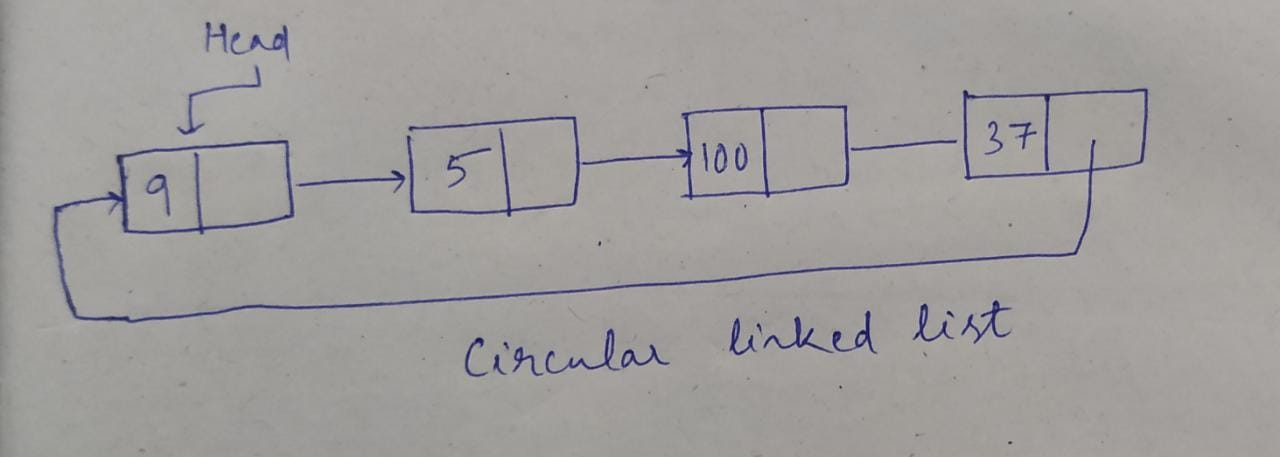 Head
9 5 100 37
Circular linked list